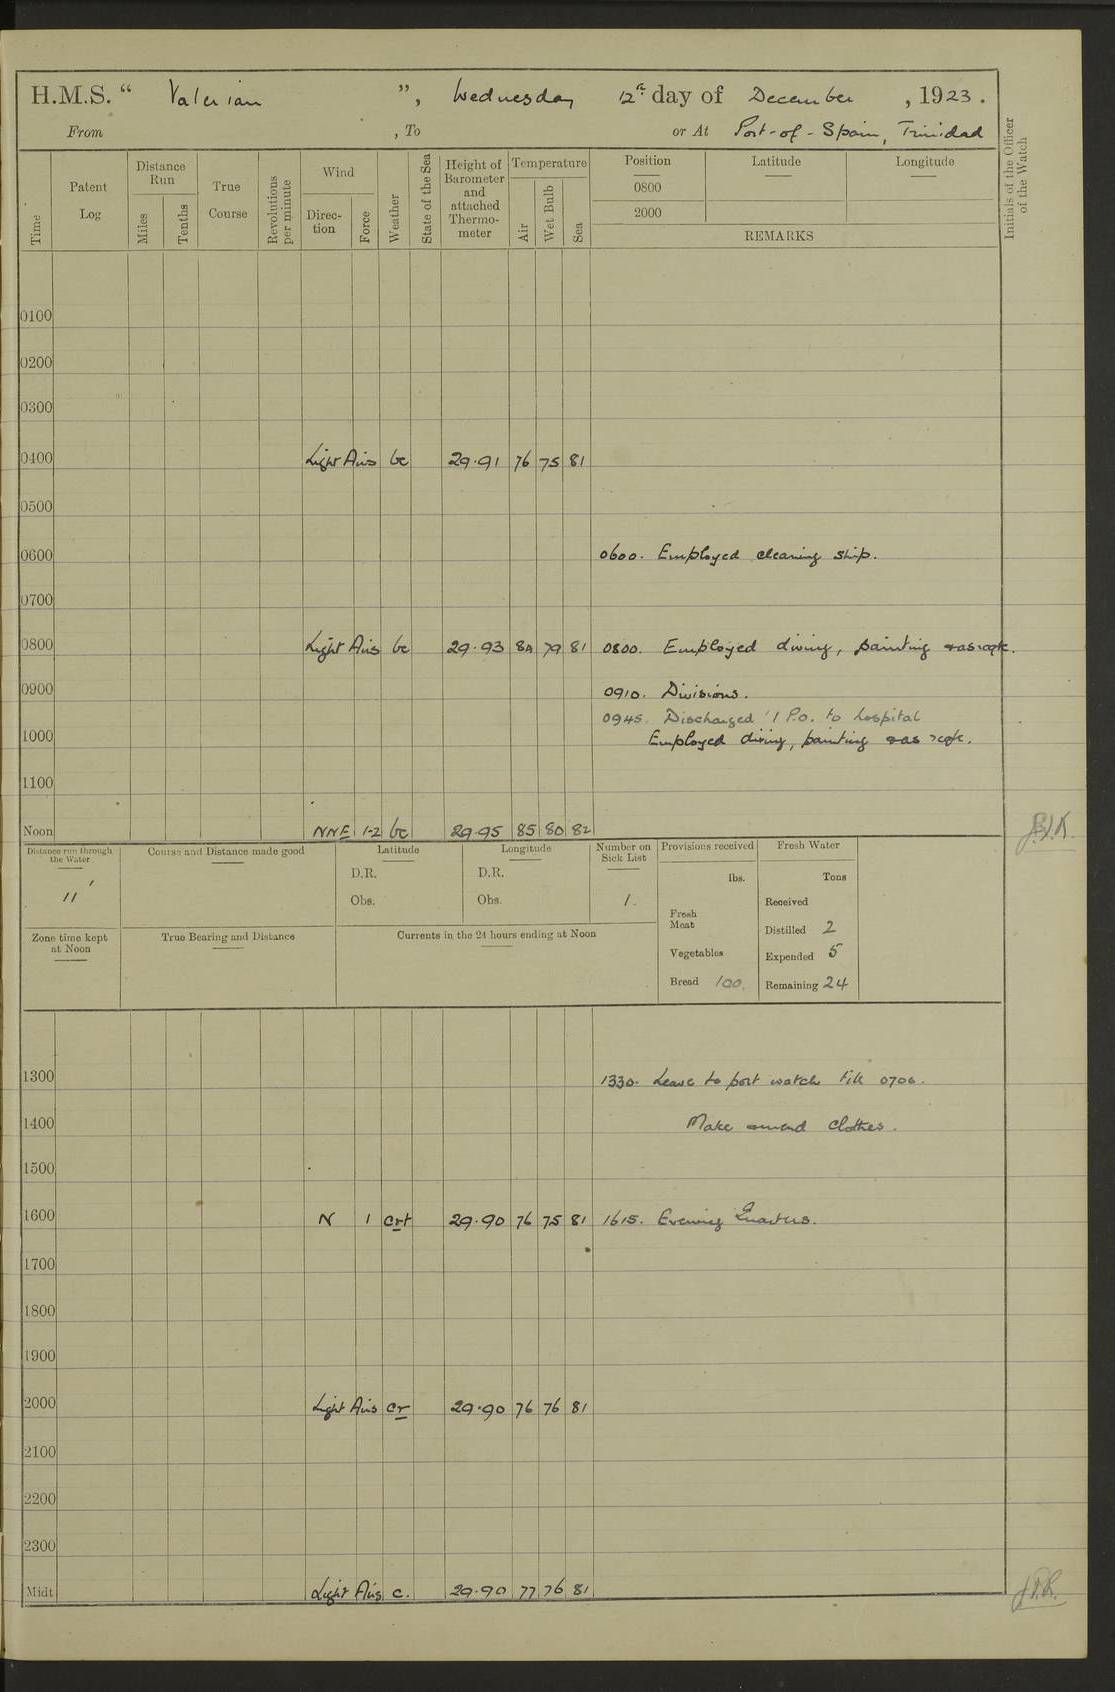 H.M.S. “ Valerian ”, Wednesday 12th day of December, 1923.
From , To or At Port-of-Spain, Trinidad
Time
Patent Log
Distance Run
Miles
Tenths
True Course
Revolutions per minute
Wind
Direc-tion
Force
Weather
State of the Sea
Height of Barometer and attached Thermo-meter
Temperature
Air
Wet Bulb
Sea
Position Latitude Longitude
0800
2000
REMARKS
Initials of the Officer of the Watch
0100
0200
0300
0400 Light Airs bc 29.91 76 75 81
0500
0600 0600. Employed cleaning ship.
0700
0800 Light Airs bc 29.93 84 79 81 0800. Employed diving, painting
0900 0910. Divisions.
0945. Discharged 1 P.O. to hospital
1000 Employed diving, painting
1100
Noon NNE 1-2 bc 29.95 85 80 82
Distance run through the Water
11'
Course and Distance made good
Latitude
D.R.
Obs.
Longitude
D.R.
Obs.
Number on Sick List
1.
Provisions received
lbs.
Fresh Meat
Vegetables
Bread 100.
Fresh Water
Tons
Received
Distilled 2
Expended 5
Remaining 24
Zone time kept at Noon
True Bearing and Distance
Currents in the 24 hours ending at Noon
1300 1330. Leave to port watch till 0700.
1400 Make & mend clothes.
1500
1600 N 1 crt 29.90 76 75 81 1615. Evening Quarters.
1700
1800
1900
2000 Light Airs cr 29.90 76 76 81
2100
2200
2300
Midt Light Airs c. 29.90 77 76 81